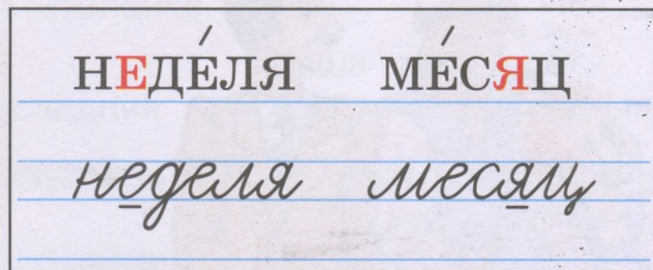 НЕДЕ́ЛЯ МЕ́СЯЦ
неделя месяц